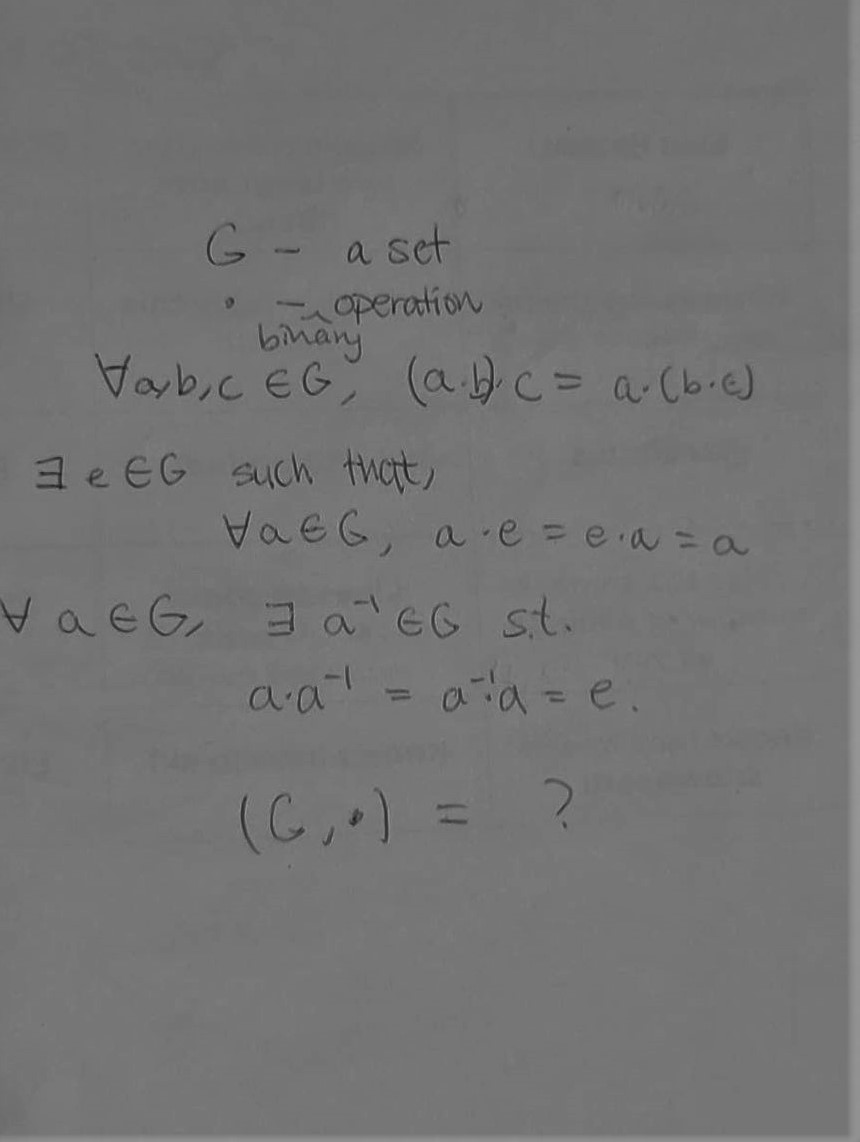 G - a set
· - operation
binary
∀a,b,c ∈G, (a·b)·c = a·(b·c)
∃ e ∈G such that,
∀a∈G, a·e = e·a = a
∀ a ∈G, ∃ a⁻¹ ∈G s.t.
a·a⁻¹ = a⁻¹·a = e.
(G,·) = ?